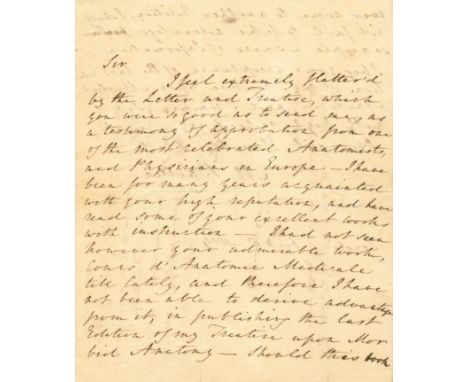 Sir
I feel extremely flatter'd
by the Letter and Treatise, which
you were so good as to send me, as
a testimony of approbation from one
of the most celebrated Anatomists,
and Physicians in Europe – I have
been for many years acquainted
with your high reputation, and have
read some of your excellent works
with instruction – I had not seen
however your admirable work,
Cours d'Anatomie Medicale
till lately, and therefore I have
not been able to derive advantage
from it, in publishing the last
Edition of my Treatise upon Mor
bid Anatomy – Should this book